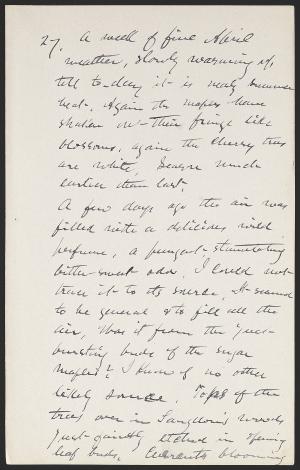 27. A week of fine April
weather, slowly warming up,
till to-day it is nearly summer
heat. Again the maples have
shaken out their fringe like
blossoms, again the cherry trees
are white, Season much
earlier than last.
A few days ago the air was
filled with a delicious wild
perfume, a pungent stimulating
bitter-sweet odor, I could not
trace it to its source, It seemed
to be general & to fill all the
air, Was it from the just-
bursting buds of the sugar
maples? I know of no other
likely source. Tops of the
trees over in Langdon's woods
just faintly etched in opening
leaf buds. Currants blooming